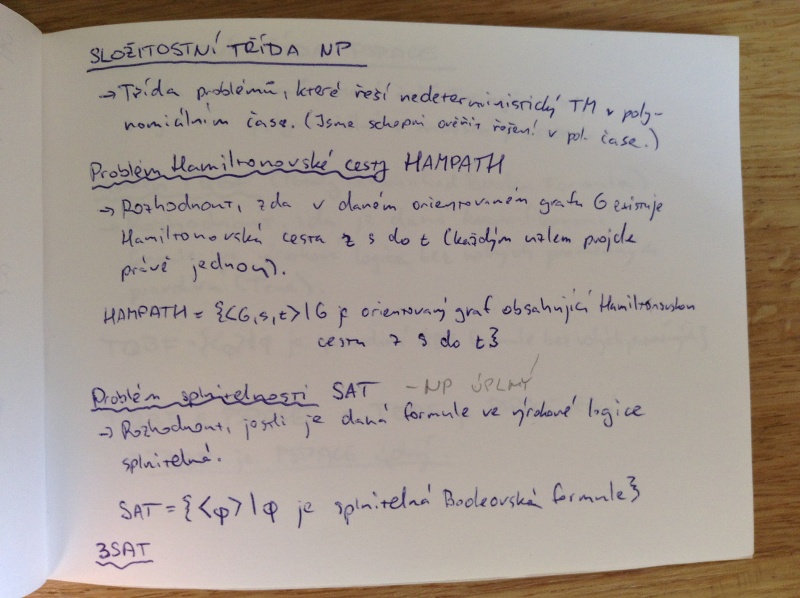 SLOŽITOSTNÍ TŘÍDA NP
→ Třída problémů, které řeší nedeterministický TM v poly-
nomiálním čase. (Jsme schopni ověřit řešení v pol. čase.)
Problém Hamiltonovské cesty HAMPATH
→ Rozhodnout, zda v daném orientovaném grafu G existuje
Hamiltonovská cesta z s do t (každým uzlem projde
právě jednou).
HAMPATH = {<G,s,t> | G je orientovaný graf obsahující Hamiltonovskou
cestu z s do t}
Problém splnitelnosti SAT - NP ÚPLNÝ
→ Rozhodnout, jestli je daná formule ve výrokové logice
splnitelná.
SAT = {<φ> | φ je splnitelná Booleovská formule}
3SAT